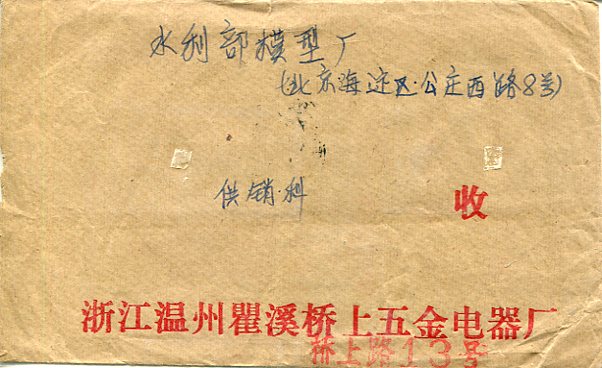 水利部模型厂
(北京海淀区·公庄西路8号)
供销科
收
浙江温州瞿溪桥上五金电器厂
桥上路13号